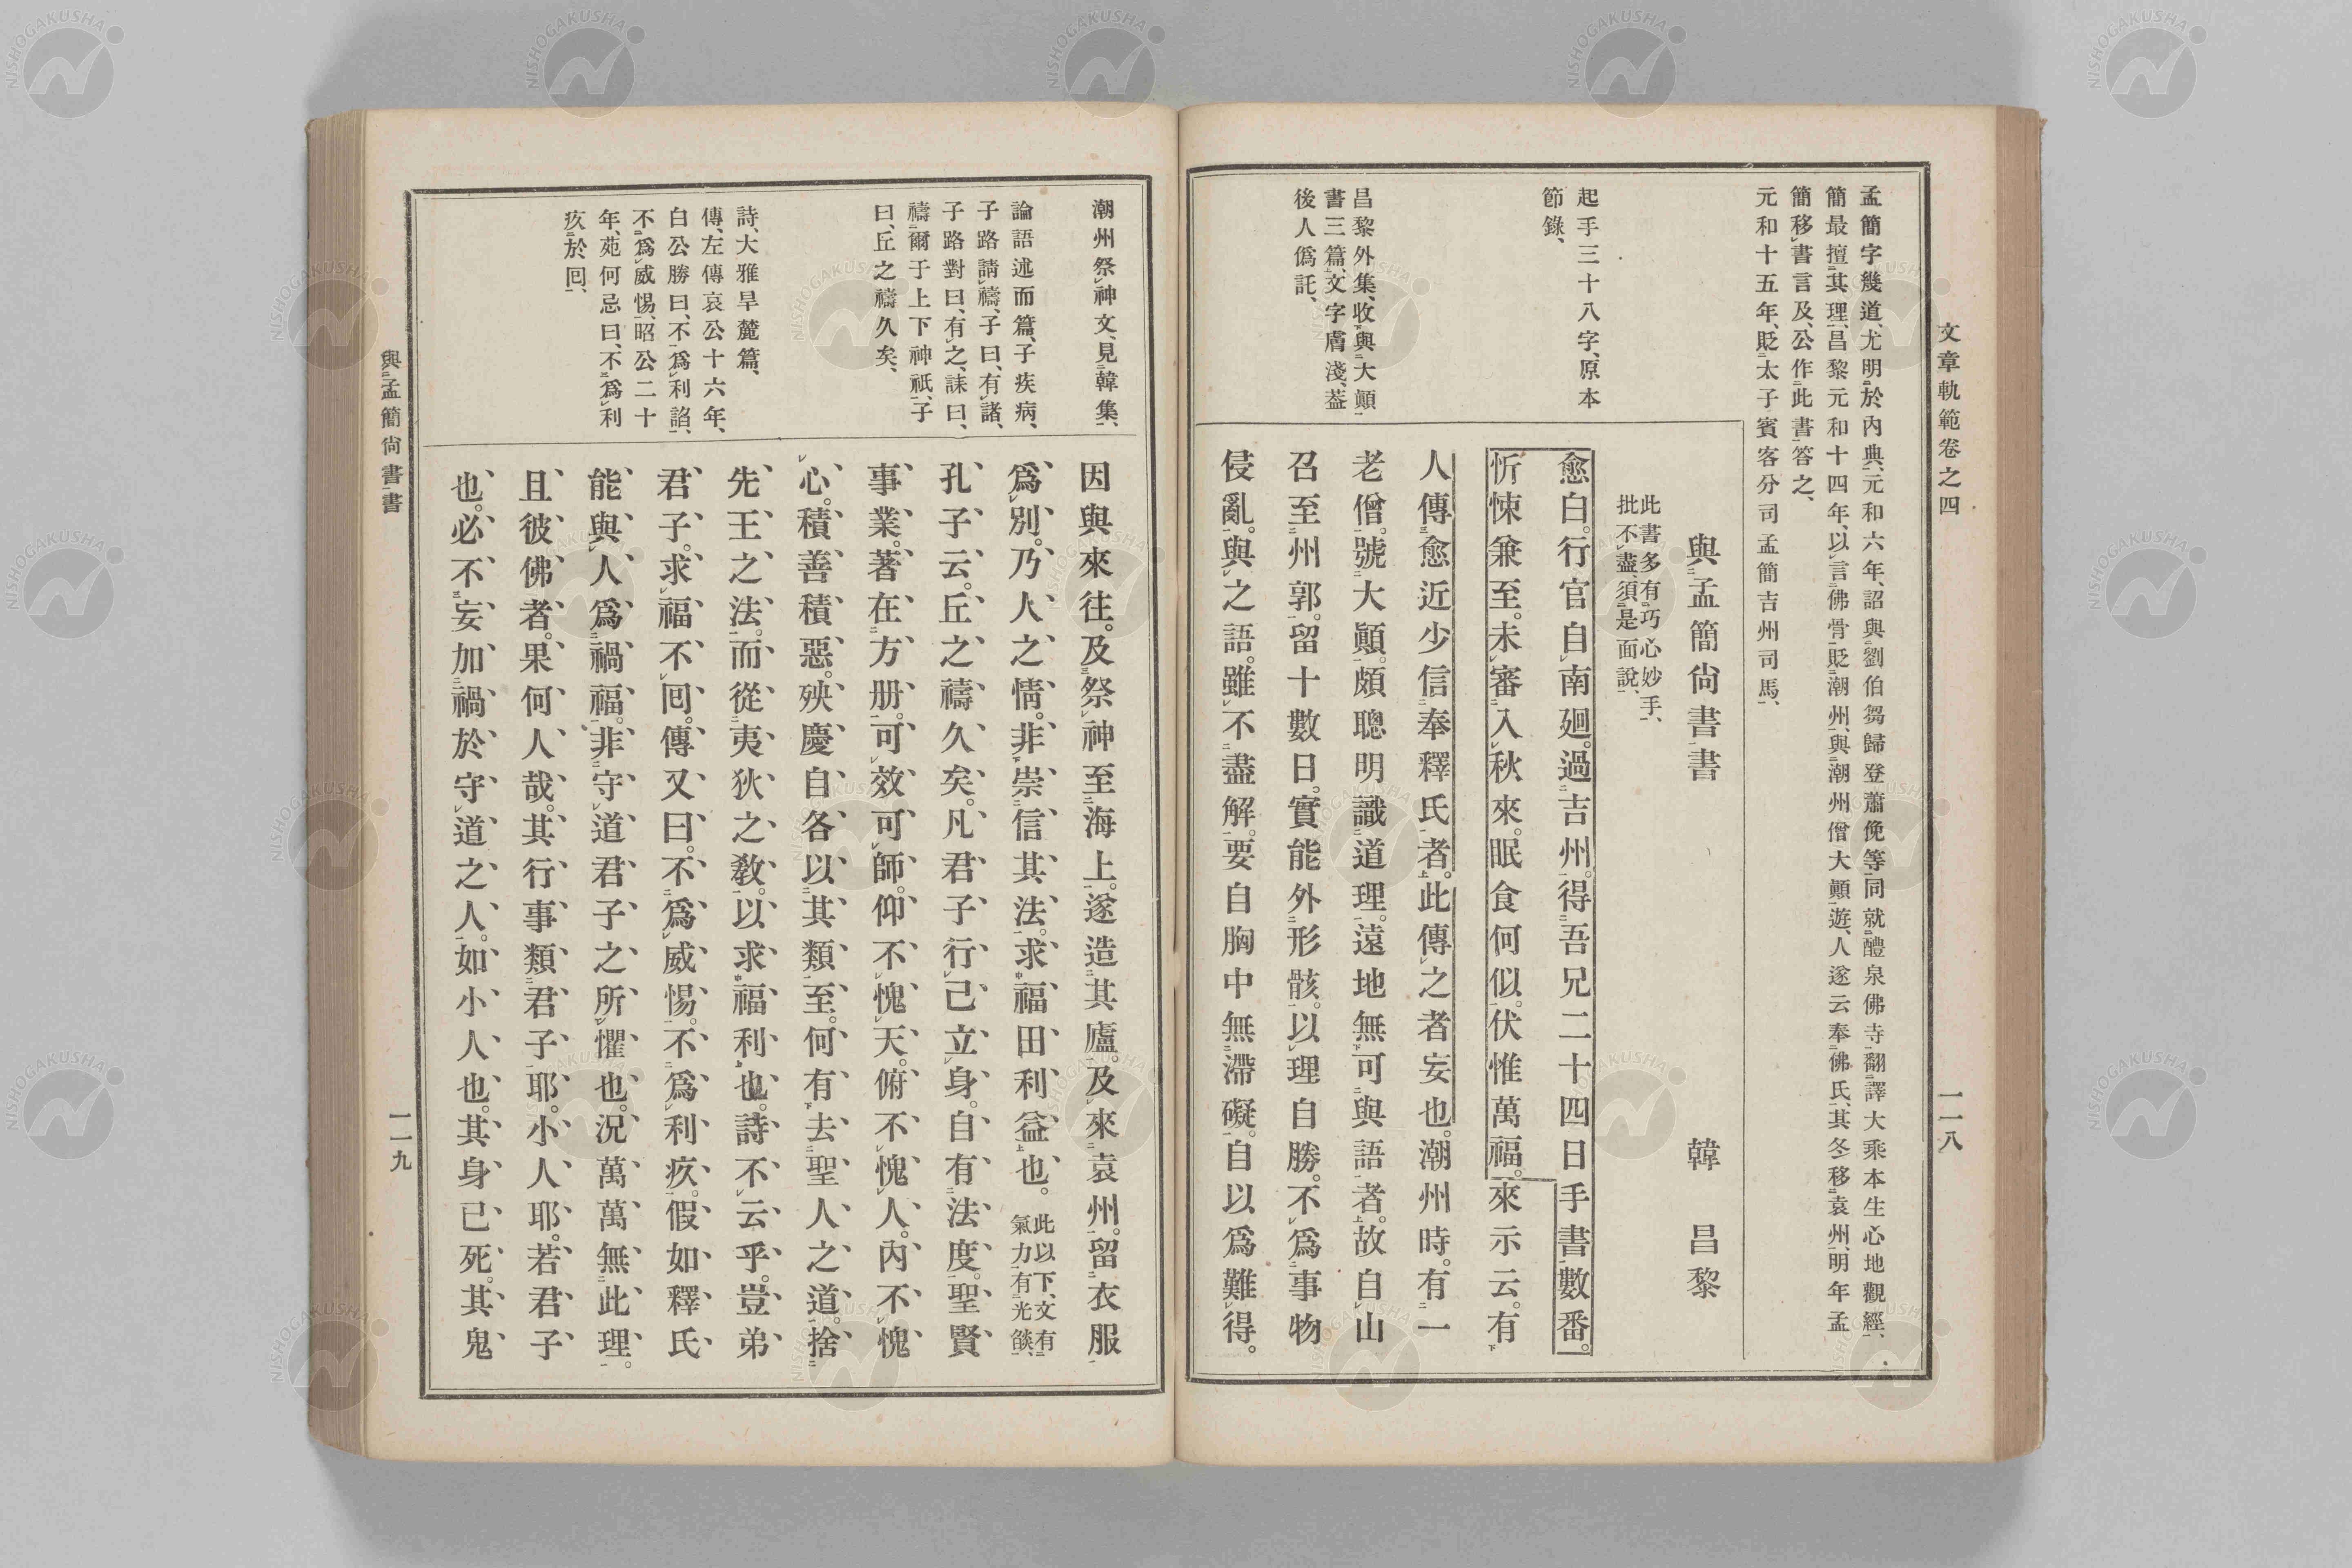 文章軌範卷之四
一一八
孟簡字幾道、尤明於內典、元和六年、詔與劉伯芻歸登蕭俛等同就醴泉佛寺翻譯大乘本生心地觀經、
簡最擅其理、昌黎元和十四年、以言佛骨貶潮州、與潮州僧大顚遊、人遂云奉佛氏、其冬移袁州、明年孟
簡移書言及、公作此書答之、
元和十五年、貶太子賓客分司孟簡吉州司馬、
起手三十八字、原本
節錄、
昌黎外集、收與大顚
書三篇、文字膚淺、葢
後人僞託、
與孟簡尙書書　韓昌黎
此書多有巧心妙手、
批不盡、須是面說、
愈白。行官自南廻。過吉州。得吾兄二十四日手書數番。
忻悚兼至。未審入秋來。眠食何似。伏惟萬福。來示云。有
人傳愈近少信奉釋氏者。此傳之者妄也。潮州時。有一
老僧。號大顚。頗聰明識道理。遠地無可與語者。故自山
召至州郭。留十數日。實能外形骸。以理自勝。不爲事物
侵亂。與之語。雖不盡解。要自胸中無滯礙。自以爲難得。
潮州祭神文、見韓集、
論語述而篇、子疾病、
子路請禱、子曰、有諸、
子路對曰、有之、誄曰、
禱爾于上下神祇、子
曰、丘之禱久矣、
詩、大雅旱麓篇、
傳、左傳哀公十六年、
白公勝曰、不爲利諂、
不爲威惕、昭公二十
年、苑何忌曰、不爲利
疚於囘、
因與來往。及祭神至海上。遂造其廬。及來袁州。留衣服
爲別。乃人之情。非崇信其法。求福田利益也。此以下、文有
氣力、有光燄、
孔子云。丘之禱久矣。凡君子行己立身。自有法度。聖賢
事業。著在方册。可效可師。仰不愧天。俯不愧人。內不愧
心。積善積惡。殃慶自各以其類至。何有去聖人之道。捨
先王之法。而從夷狄之敎。以求福利也。詩不云乎。豈弟
君子。求福不囘。傳又曰。不爲威惕。不爲利疚。假如釋氏
能與人爲禍福。非守道君子之所懼也。況萬萬無此理。
且彼佛者。果何人哉。其行事類君子耶。小人耶。若君子
也。必不妄加禍於守道之人。如小人也。其身已死。其鬼
與孟簡尙書書
一一九
NISHOGAKUSHA